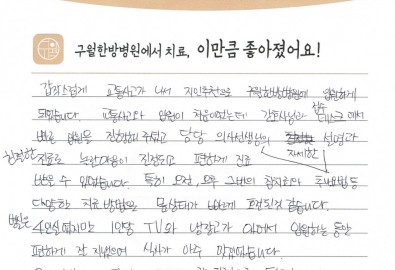 구월한방병원에서 치료, 이만큼 좋아졌어요!
갑작스럽게 교통사고가 나서 지인추천으로 구월한방병원에 입원하게
되었습니다. 교통사고와 입원이 처음이었는데 간호사님과 데스크에서
빠른 입원을 진행해 주셨고 담당 의사선생님의 설명과
친절한 자세한
진료로 놀란마음이 진정되고 편하게 진료
받을 수 있었습니다. 특히 오전, 오후 그번의 침치료와 추나요법등
다양한 치료 방법으로 몸상태가 빠르게 호전된것 같습니다.
병실은
4인실이지만 1인당 TV와 냉장고가 있어서 입원하는 동안
편하게 잘 지냈으며 식사가 아주 깔끔했습니다.